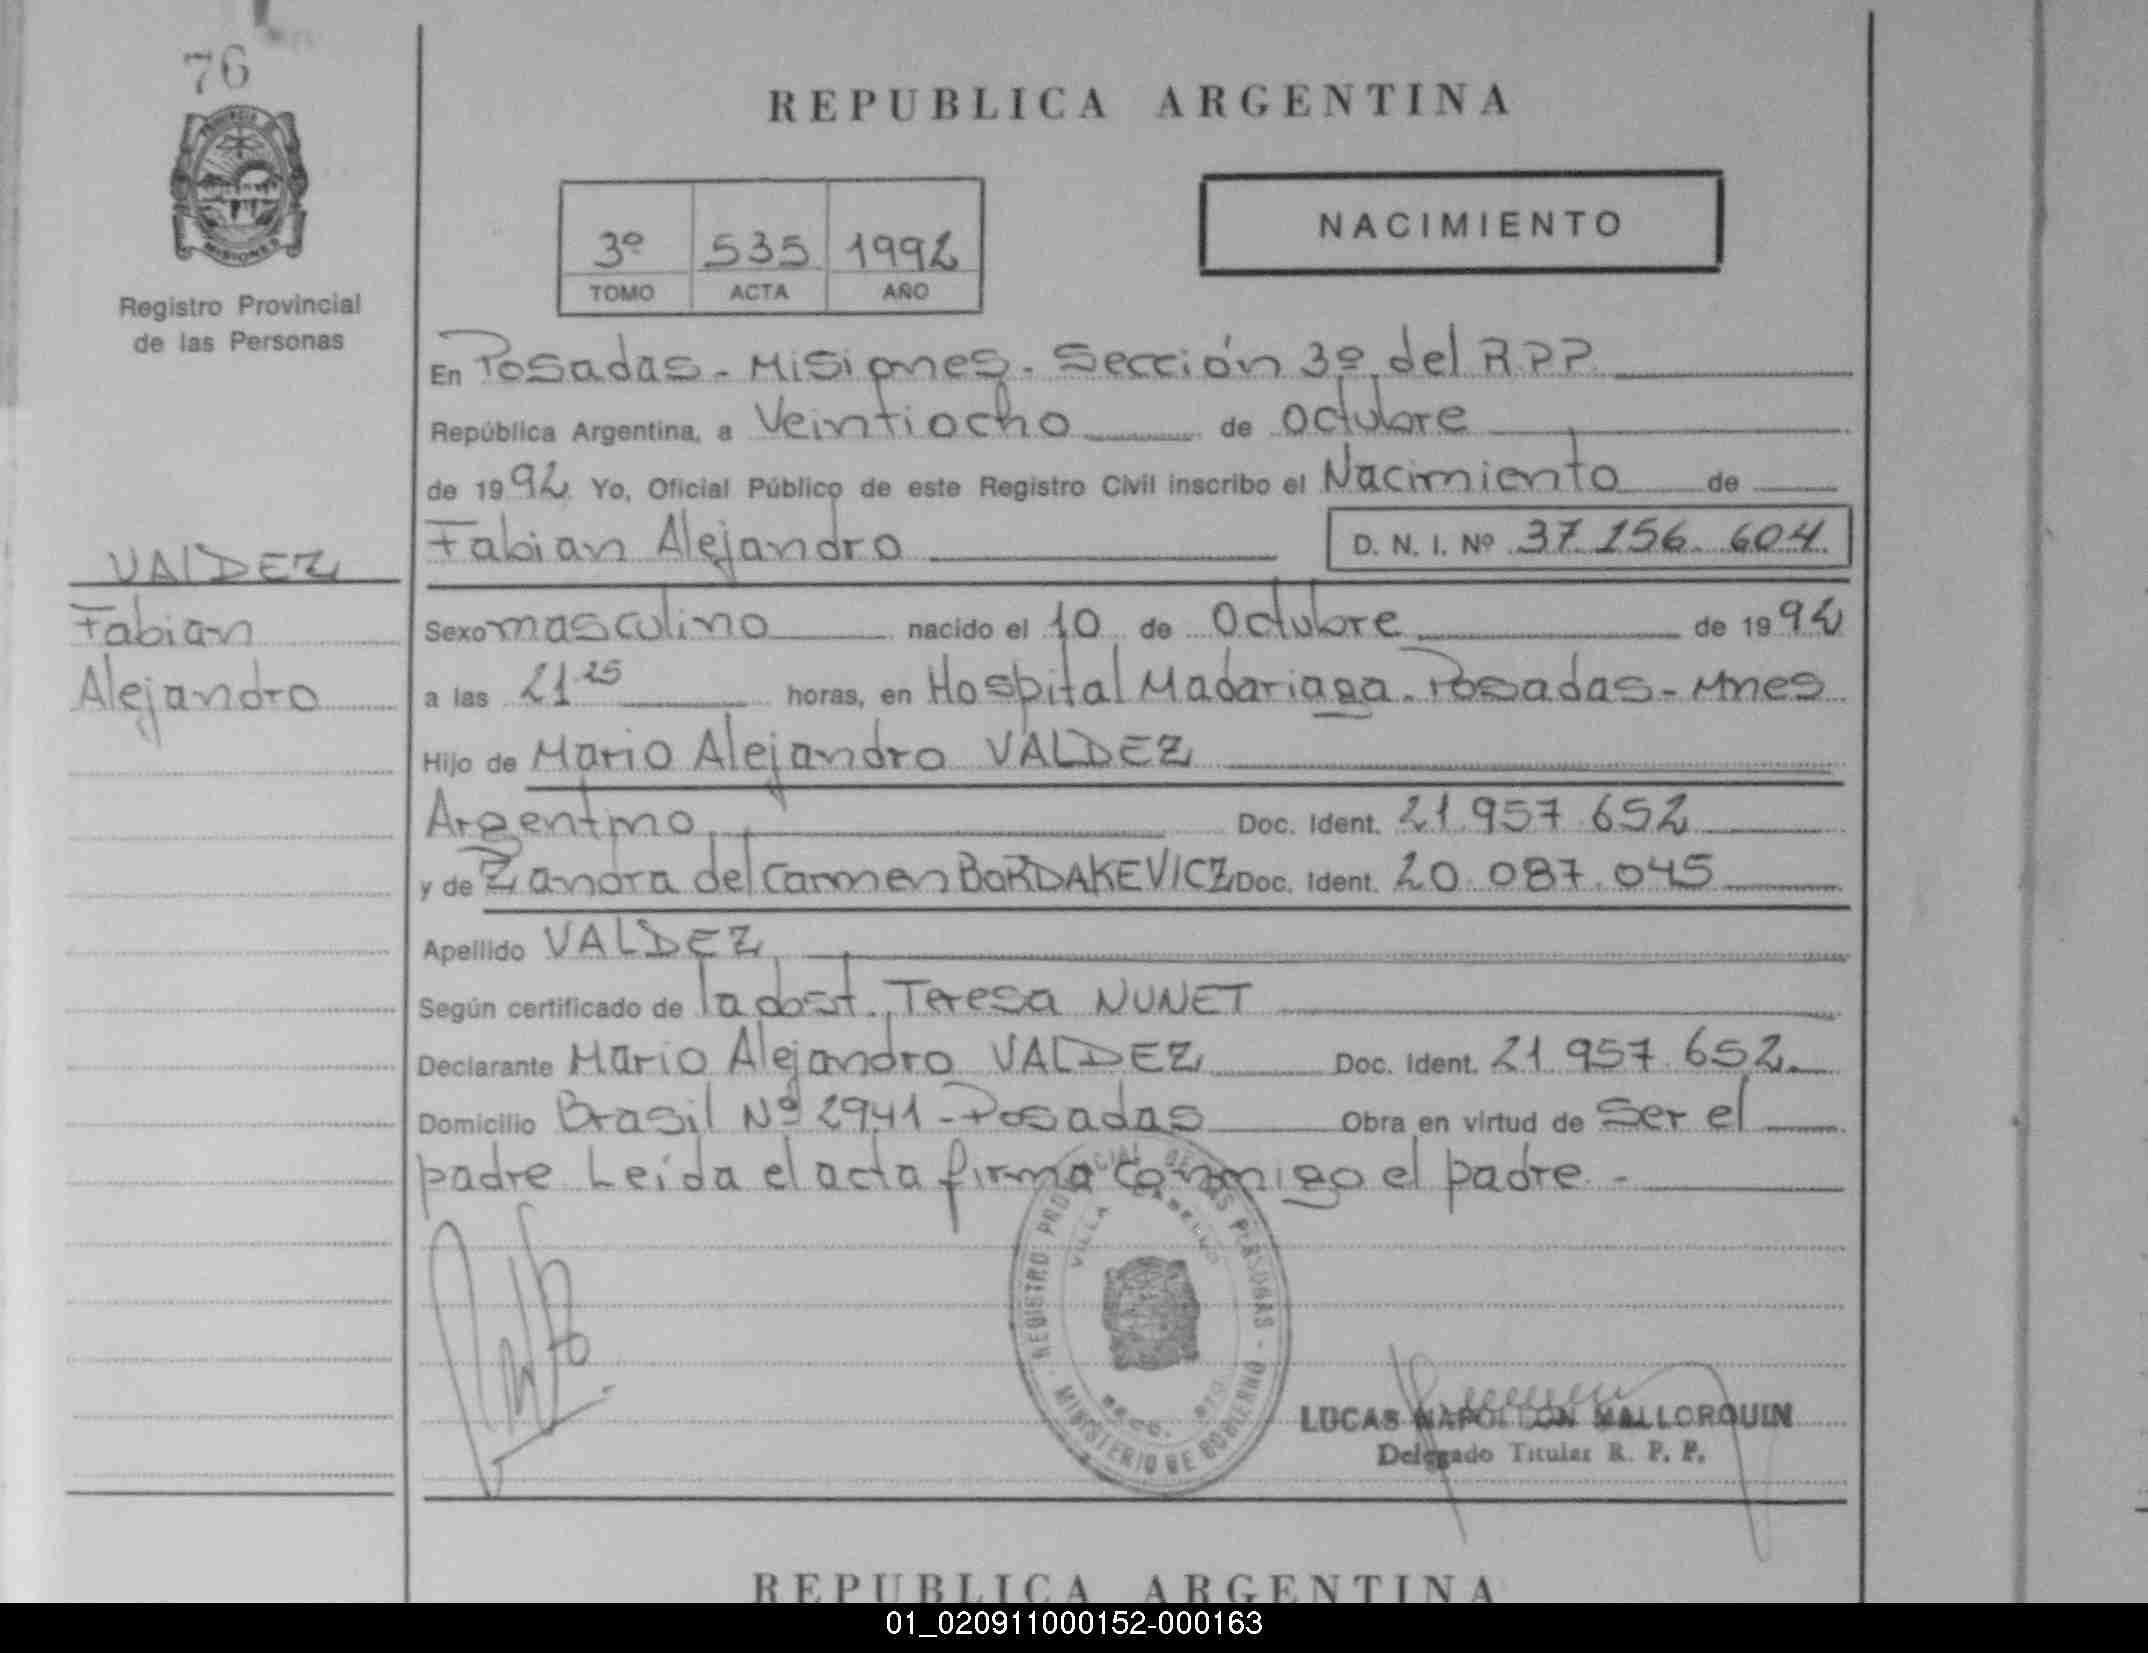 76
REPUBLICA ARGENTINA
PROVINCIA DE
MISIONES
Registro Provincial
de las Personas
NACIMIENTO
3º 535 1992
TOMO ACTA AÑO
En Posadas - Misiones - Sección 3º del R.P.P.
República Argentina, a Veintiocho de Octubre
de 1992 Yo, Oficial Público de este Registro Civil inscribo el Nacimiento de
Fabian Alejandro D. N. I. Nº 37.156.604
VALDEZ
Fabian
Alejandro
Sexo masculino nacido el 10 de Octubre de 1992
a las 21 25 horas, en Hospital Madariaga - Posadas - Mnes
Hijo de Mario Alejandro VALDEZ
Argentino Doc. Ident. 21.957.652
y de Zandra del Carmen BORDAKEVICZ Doc. Ident. 20.087.045
Apellido VALDEZ
Según certificado de la obst. Teresa NUNET
Declarante Mario Alejandro VALDEZ Doc. Ident. 21.957.652.
Domicilio Brasil Nº 2941 - Posadas Obra en virtud de Ser el
padre Leída el acta firma conmigo el padre. -
REGISTRO PROVINCIAL DE LAS PERSONAS - MINISTERIO DE GOBIERNO -
VILLA
LUCAS NAPOLEON MALLORQUIN
Delegado Titular R. P. P.
REPUBLICA ARGENTINA
01_020911000152-000163